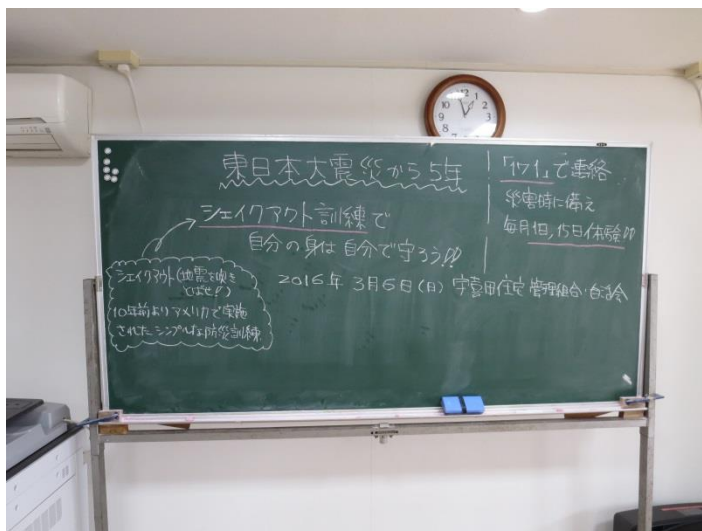 東日本大震災から5年
シェイクアウト訓練で
自分の身は自分で守ろう!!
2016年 3月6日(日) 宇喜田住宅 管理組合・自治会
シェイクアウト(地震を吹き
とばせ!)
10年前よりアメリカで実施
されたシンプルな防災訓練
「171」で連絡
災害時に備え
毎月1日,15日体験!!
12
1
2
3
4
5
6
7
8
9
10
11